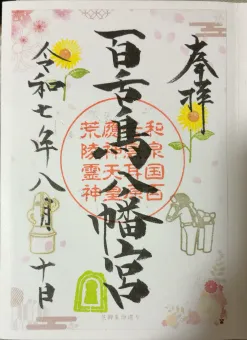 奉拝
百舌鳥八幡宮
和泉国百
應神天皇
荒陵霊神
令和七年八月十日